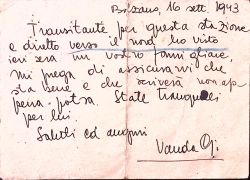 Bolzano, 16 sett. 1943
Transitante per questa stazione
e diretto verso il nord ho visto
ieri sera un vostro famigliare,
mi prega di assicurarvi che
sta bene e che scriverà non app
pena potrà. State tranquilli
per lui.
Saluti ed auguri
Vanda